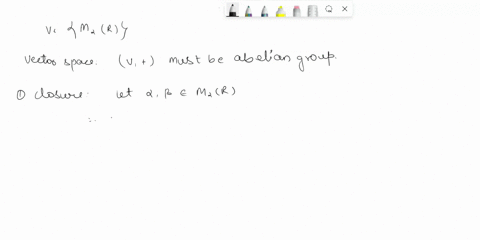 V = {M₂(R)}
Vector space. (V,+) must be abelian group.
① Closure: let α, β ∈ M₂(R)
∴